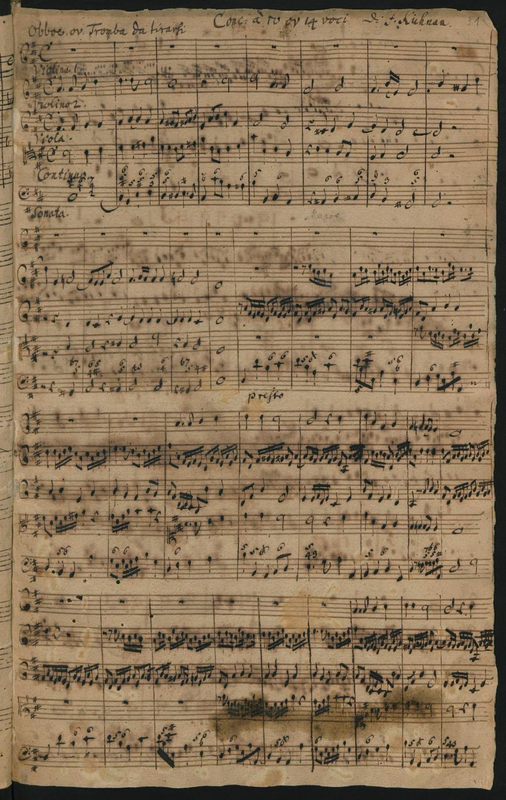 Conc. à 10 ov 14 voci di J. Kuhnau.
Obboe. ov Tromba da tirarsi
Violino 1.
Violino 2.
Viola.
Continuo
Sonata.
presto